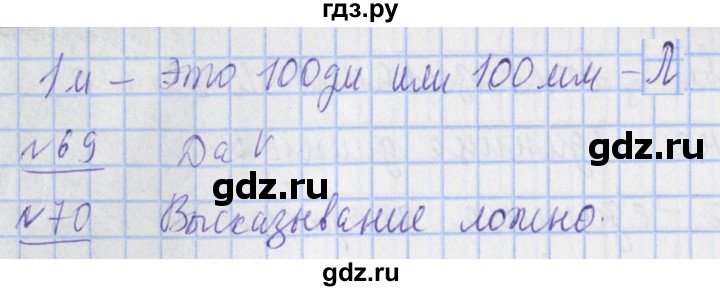 гдз.ру
1м – это 100дм или 100мм – Л
gdz.ru
№69 Да V
gdz.ru
gdz.ru
№70 Высказывание ложно.
gdz.ru
gdz.ru